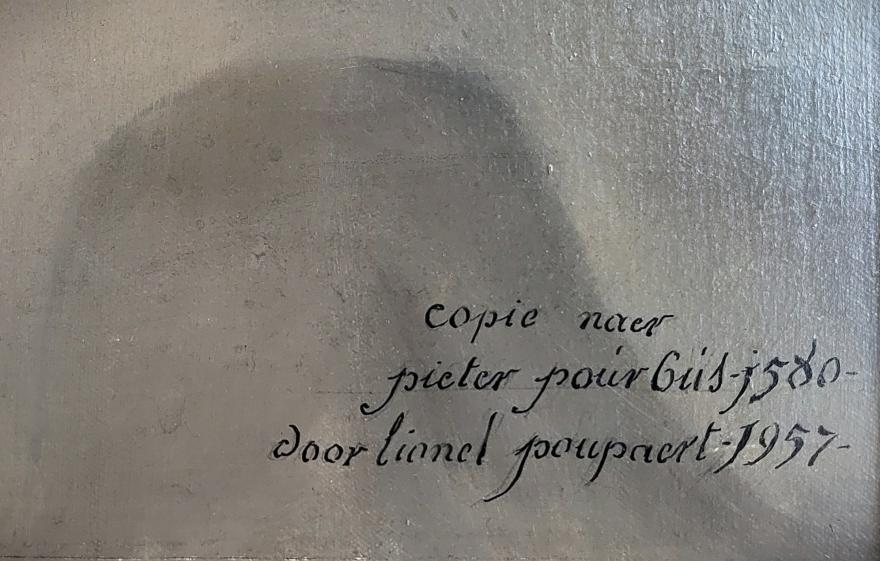 copie naer
pieter poúrbús-j580-
door lionel poupaert-1957-